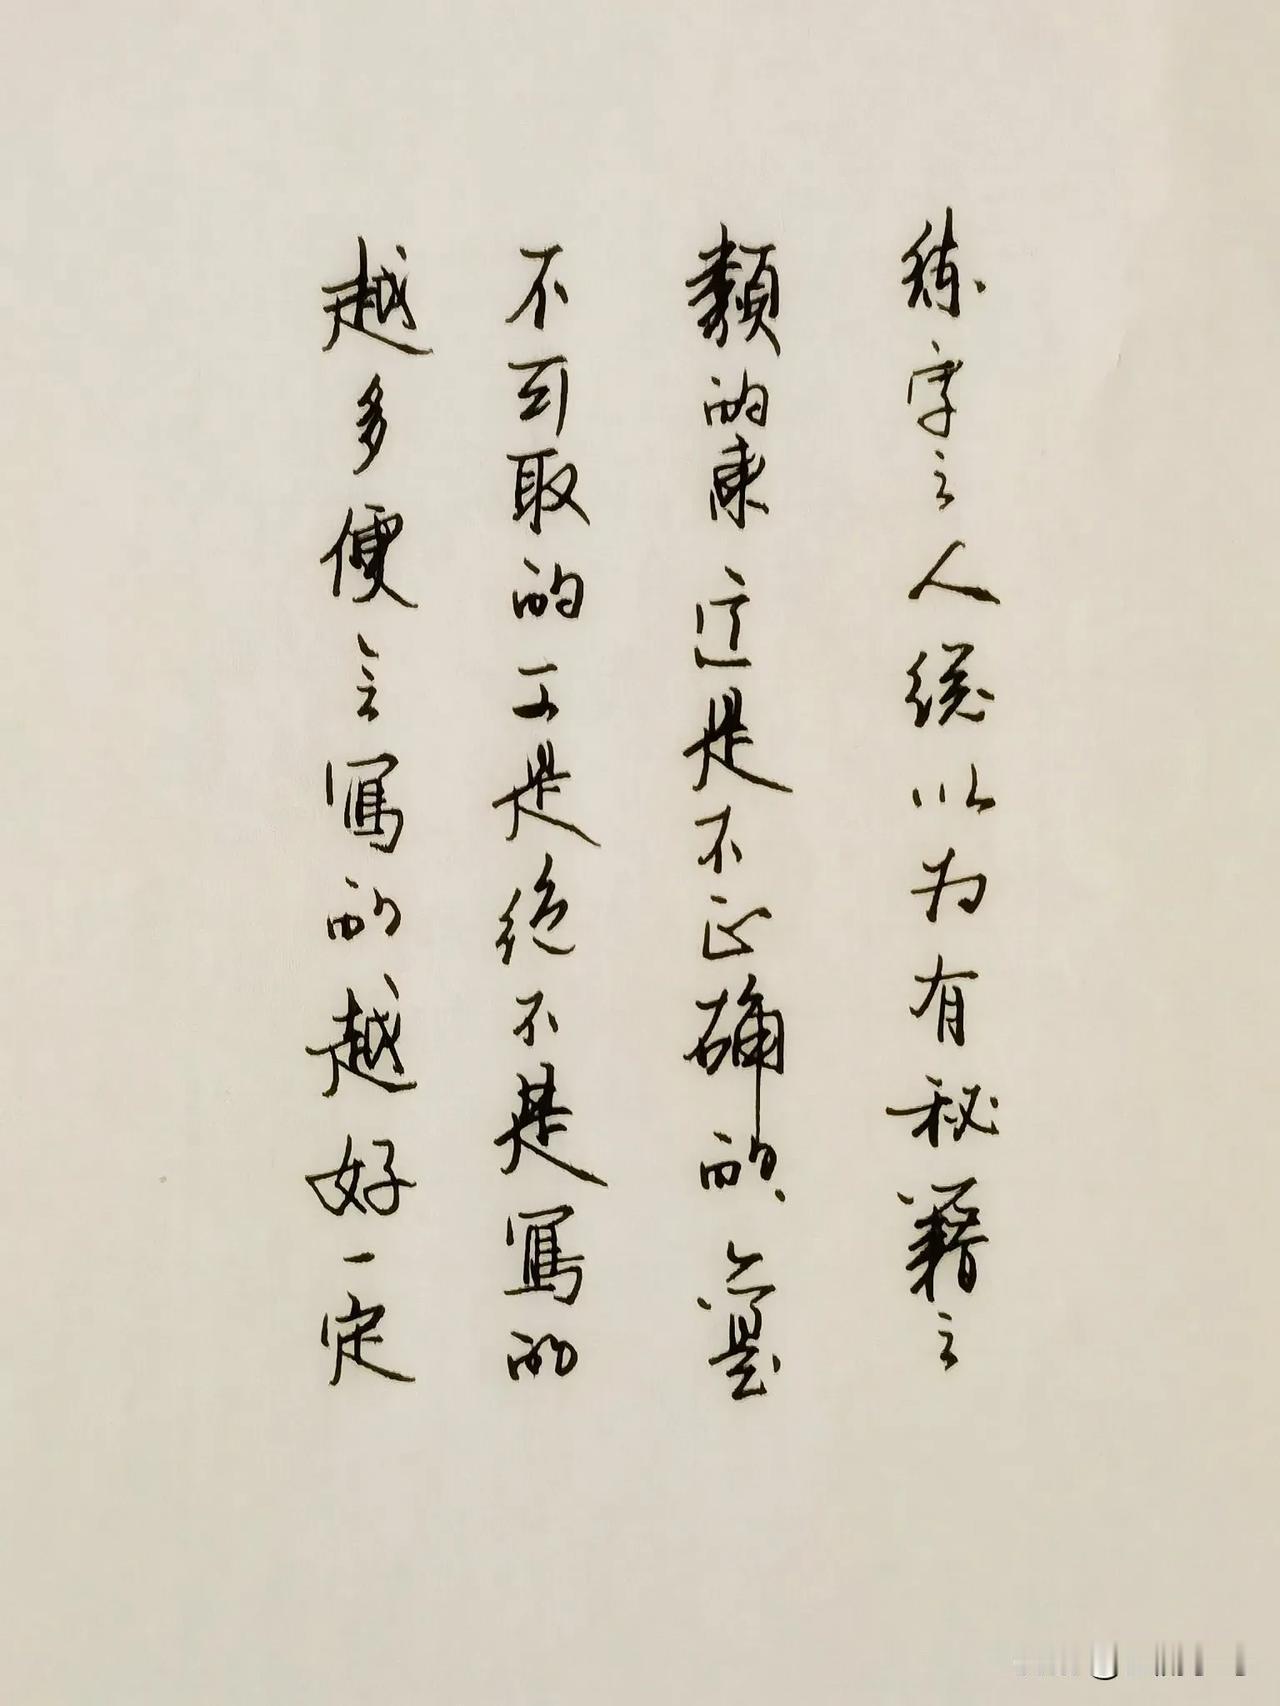 练字之人総以为有秘籍之
類的東这是不正确的、亦是
不可取的又是绝不是寫的
越多便会寫的越好一定